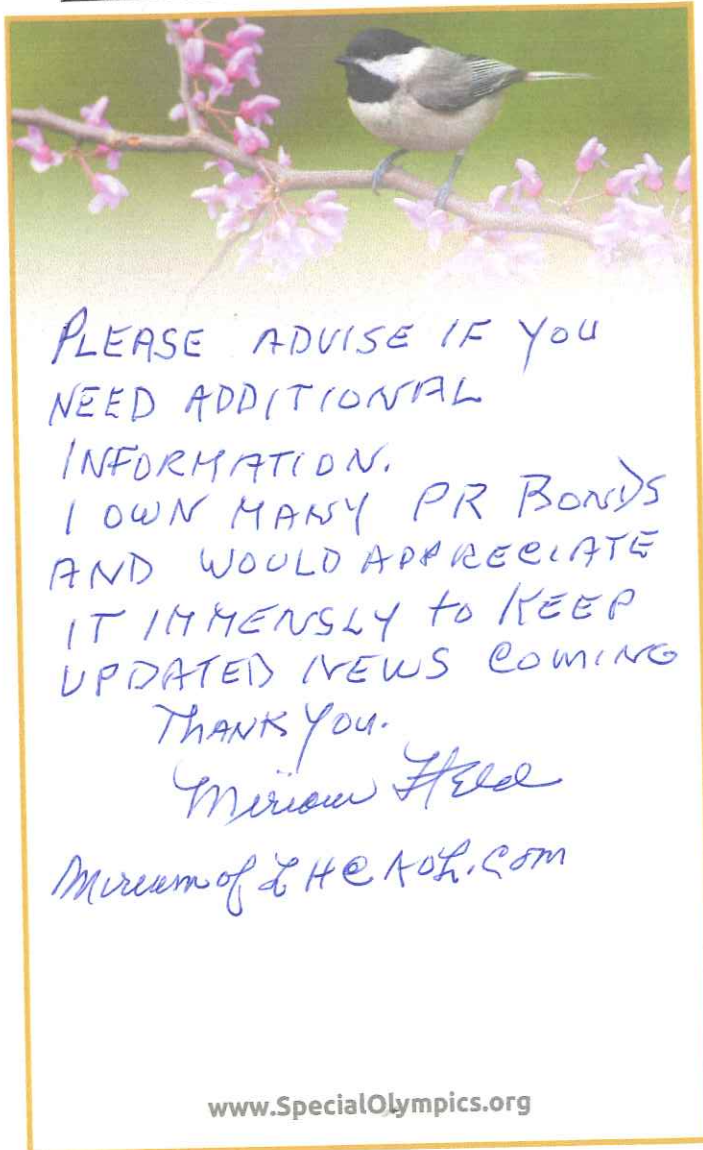 PLEASE ADVISE IF YOU
NEED ADDITIONAL
INFORMATION.
I OWN MANY PR BONDS
AND WOULD APPRECIATE
IT IMMENSLY to KEEP
UPDATED NEWS COMING
THANK YOU.
Miriam Held
MiriamofLH@AOL.COM
www.SpecialOlympics.org